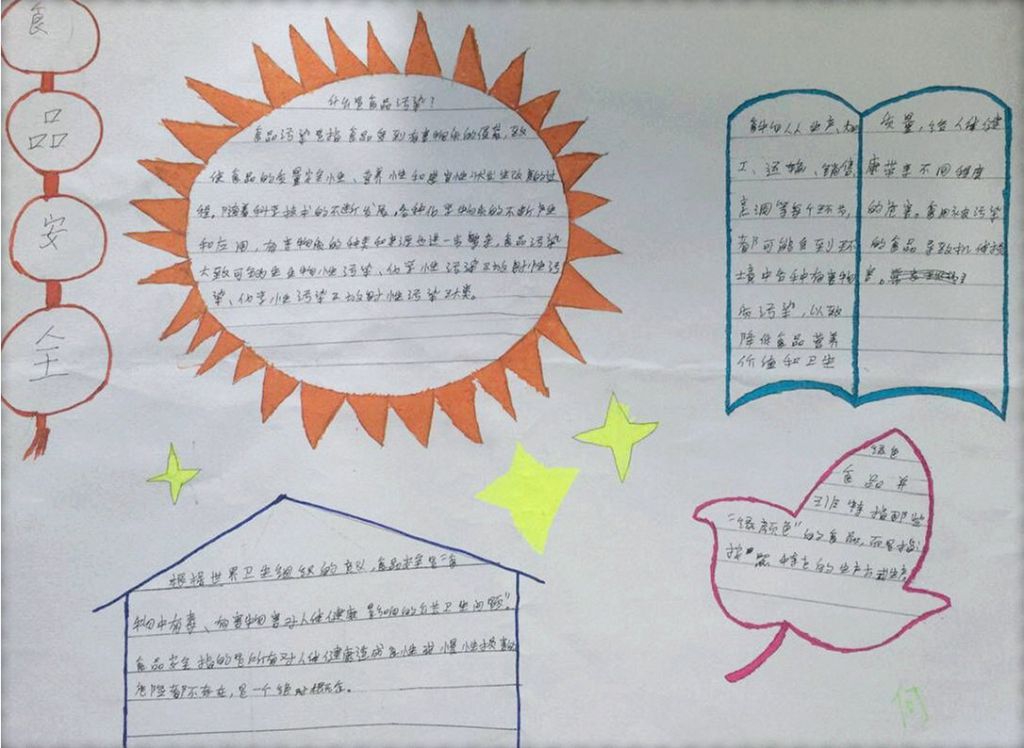 食
品
安
全
什么是食品污染？
食品污染是指食品受到有害物质的侵袭，致
使食品的质量安全性、营养性和感官性状发生改变的过
程。随着科学技术的不断发展，各种化学物质的不断产生
和应用，有害物质的种类和来源也进一步繁杂，食品污染
大致可分为生物性污染、化学性污染
染、化学性污染
食物从
工、运输、销售
烹调等每个环节，
都可能受到环
境中各种有害物
质污染，以致
降低食品营养
价值和卫生
质量，给人体健
康带来不同程度
的危害。食用被污染
的食品导致机体损
害。
根据世界卫生组织的定义，食品安全是“食
物中有毒、有害物害对人体健康影响的公共卫生问题”。
食品安全指的是所有对人体健康造成急性或慢性损害的
危险都不存在，是一个绝对概念。
绿色
食品并
非特指那些
“绿颜色”的食品，而是指
按照特定的生产方式生产
何